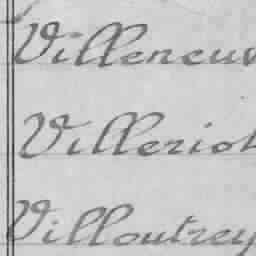 Villeneuv
Villeriot
Villoutrey